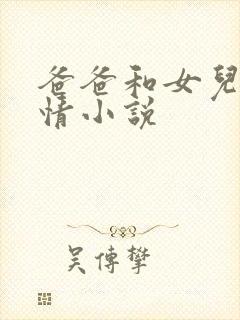 爸爸和女兒
情小說
吴傳攀